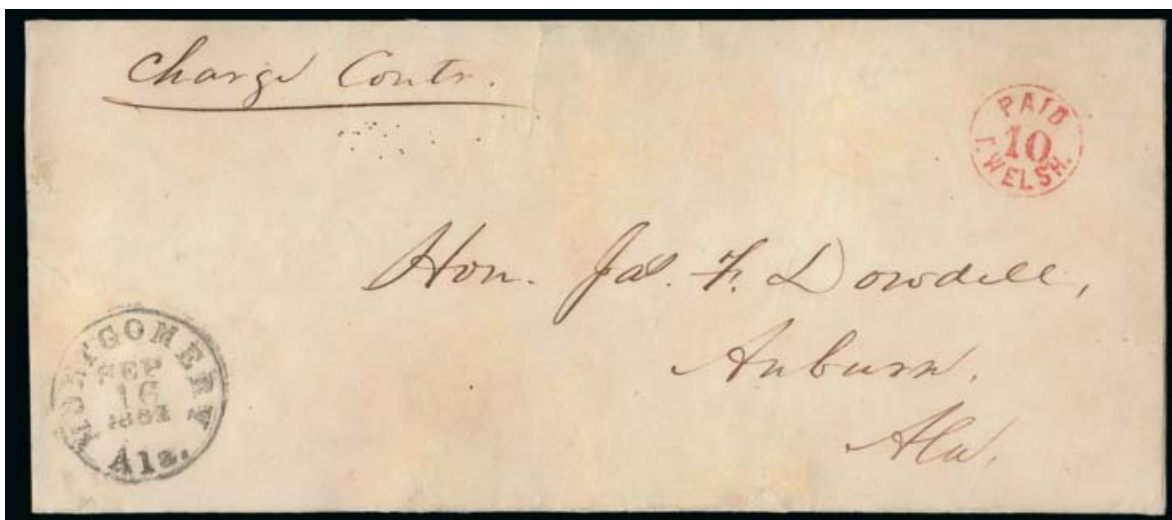 Charge Contr.
PAID
10
T. WELSH.
Hon. Jas. F. Dowdell,
Auburn.
Ala.
MONTGOMERY
SEP
16
Ala.